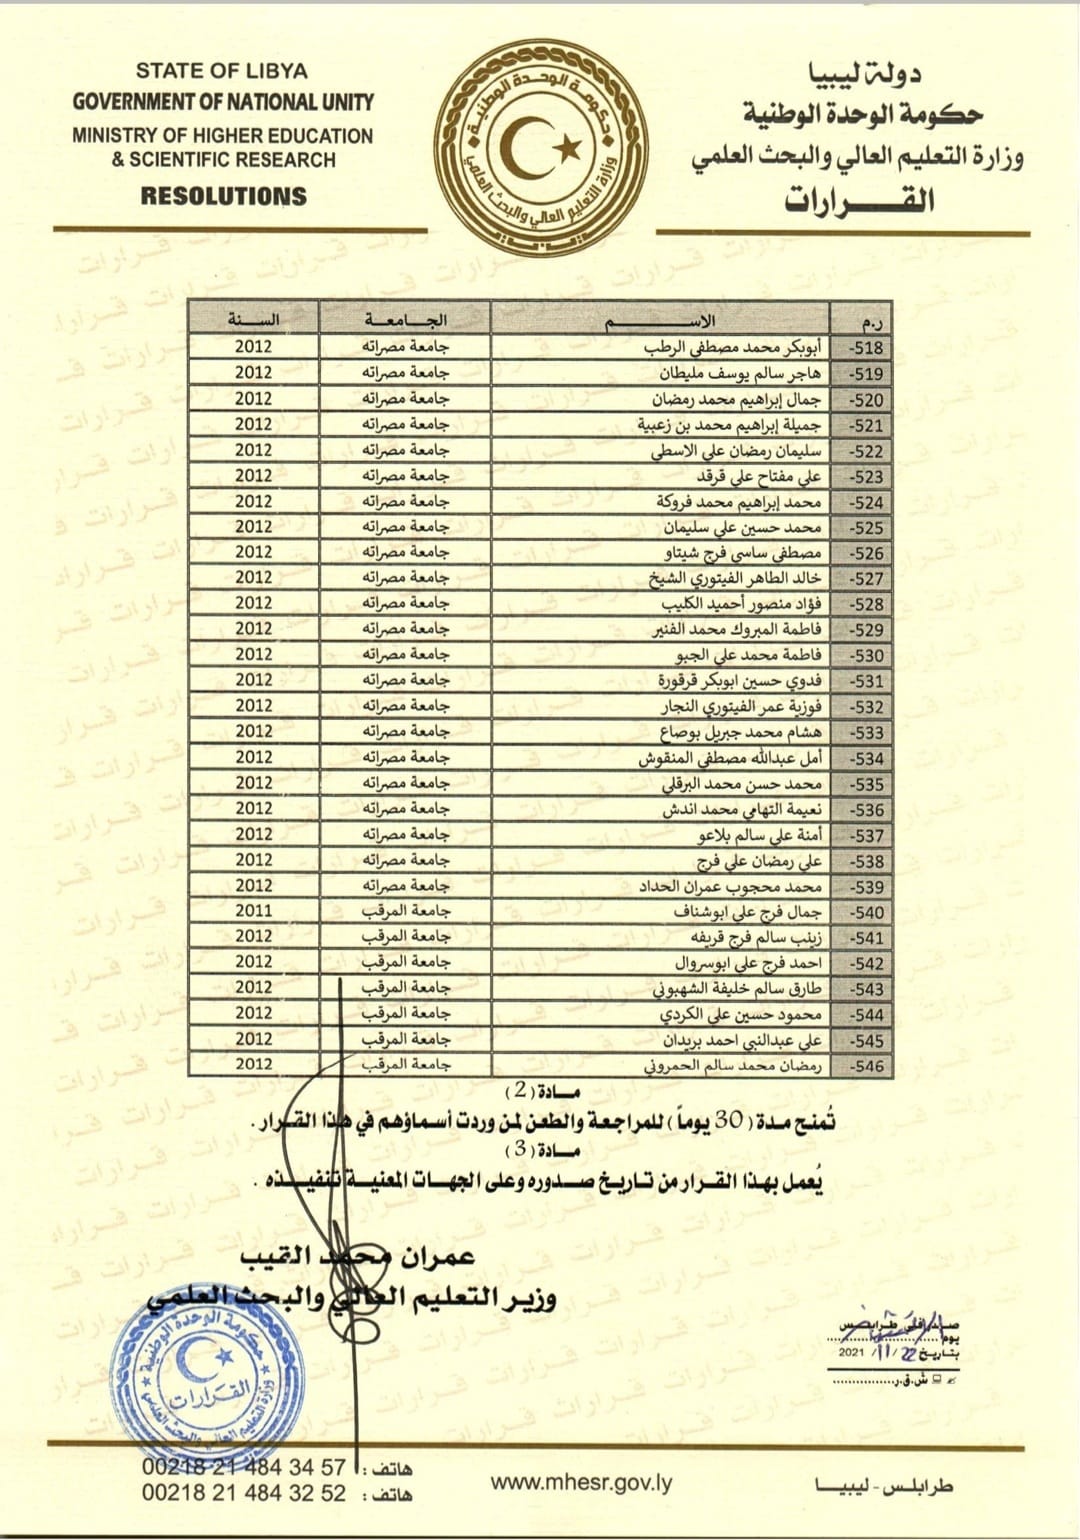 STATE OF LIBYA
GOVERNMENT OF NATIONAL UNITY
MINISTRY OF HIGHER EDUCATION
& SCIENTIFIC RESEARCH
RESOLUTIONS
حكومة الوحدة الوطنية
وزارة التعليم العالي والبحث العلمي
دولة ليبيا
حكومة الوحدة الوطنية
وزارة التعليم العالي والبحث العلمي
القـــرارات
ر.م الاســـم الجـامعـة السـنة
518- أبوبكر محمد مصطفي الرطب جامعة مصراته 2012
519- هاجر سالم يوسف مليطان جامعة مصراته 2012
520- جمال إبراهيم محمد رمضان جامعة مصراته 2012
521- جميلة إبراهيم محمد بن زعبية جامعة مصراته 2012
522- سليمان رمضان علي الاسطى جامعة مصراته 2012
523- علي مفتاح علي قرقد جامعة مصراته 2012
524- محمد إبراهيم محمد فروكة جامعة مصراته 2012
525- محمد حسين علي سليمان جامعة مصراته 2012
526- مصطفي ساسي فرج شيتاو جامعة مصراته 2012
527- خالد الطاهر الفيتوري الشيخ جامعة مصراته 2012
528- فؤاد منصور أحميد الكليب جامعة مصراته 2012
529- فاطمة المبروك محمد الفنير جامعة مصراته 2012
530- فاطمة محمد علي الجبو جامعة مصراته 2012
531- فدوي حسين ابوبكر قرقورة جامعة مصراته 2012
532- فوزية عمر الفيتوري النجار جامعة مصراته 2012
533- هشام محمد جبريل بوصاع جامعة مصراته 2012
534- أمل عبدالله مصطفي المنقوش جامعة مصراته 2012
535- محمد حسن محمد البرقلي جامعة مصراته 2012
536- نعيمة التهامي محمد اندش جامعة مصراته 2012
537- أمنة علي سالم بلاعو جامعة مصراته 2012
538- علي رمضان علي فرج جامعة مصراته 2012
539- محمد محجوب عمران الحداد جامعة مصراته 2012
540- جمال فرج علي ابوشناف جامعة المرقب 2011
541- زينب سالم فرج قريفه جامعة المرقب 2012
542- احمد فرج علي ابوسروال جامعة المرقب 2012
543- طارق سالم خليفة الشهبوني جامعة المرقب 2012
544- محمود حسين علي الكردي جامعة المرقب 2012
545- علي عبدالنبي احمد بريدان جامعة المرقب 2012
546- رمضان محمد سالم الحمروني جامعة المرقب 2012
مـــادة (2)
تُمنح مدة (30 يوماً) للمراجعة والطعن لمن وردت أسماؤهم في هذا القرار .
مـــادة (3)
يُعمل بهذا القرار من تاريخ صدوره وعلى الجهات المعنية تنفيذه .
عمران محمد القيب
وزير التعليم العالي والبحث العلمي
حكومة الوحدة الوطنية
القرارات
وزارة التعليم العالي والبحث العلمي
صدر في طرابلس
يوم
بتاريخ 22 / 11 / 2021
ش.ق.ر
هاتف : 00218 21 484 34 57
هاتف : 00218 21 484 32 52
www.mhesr.gov.ly
طرابلس - ليبيـــا